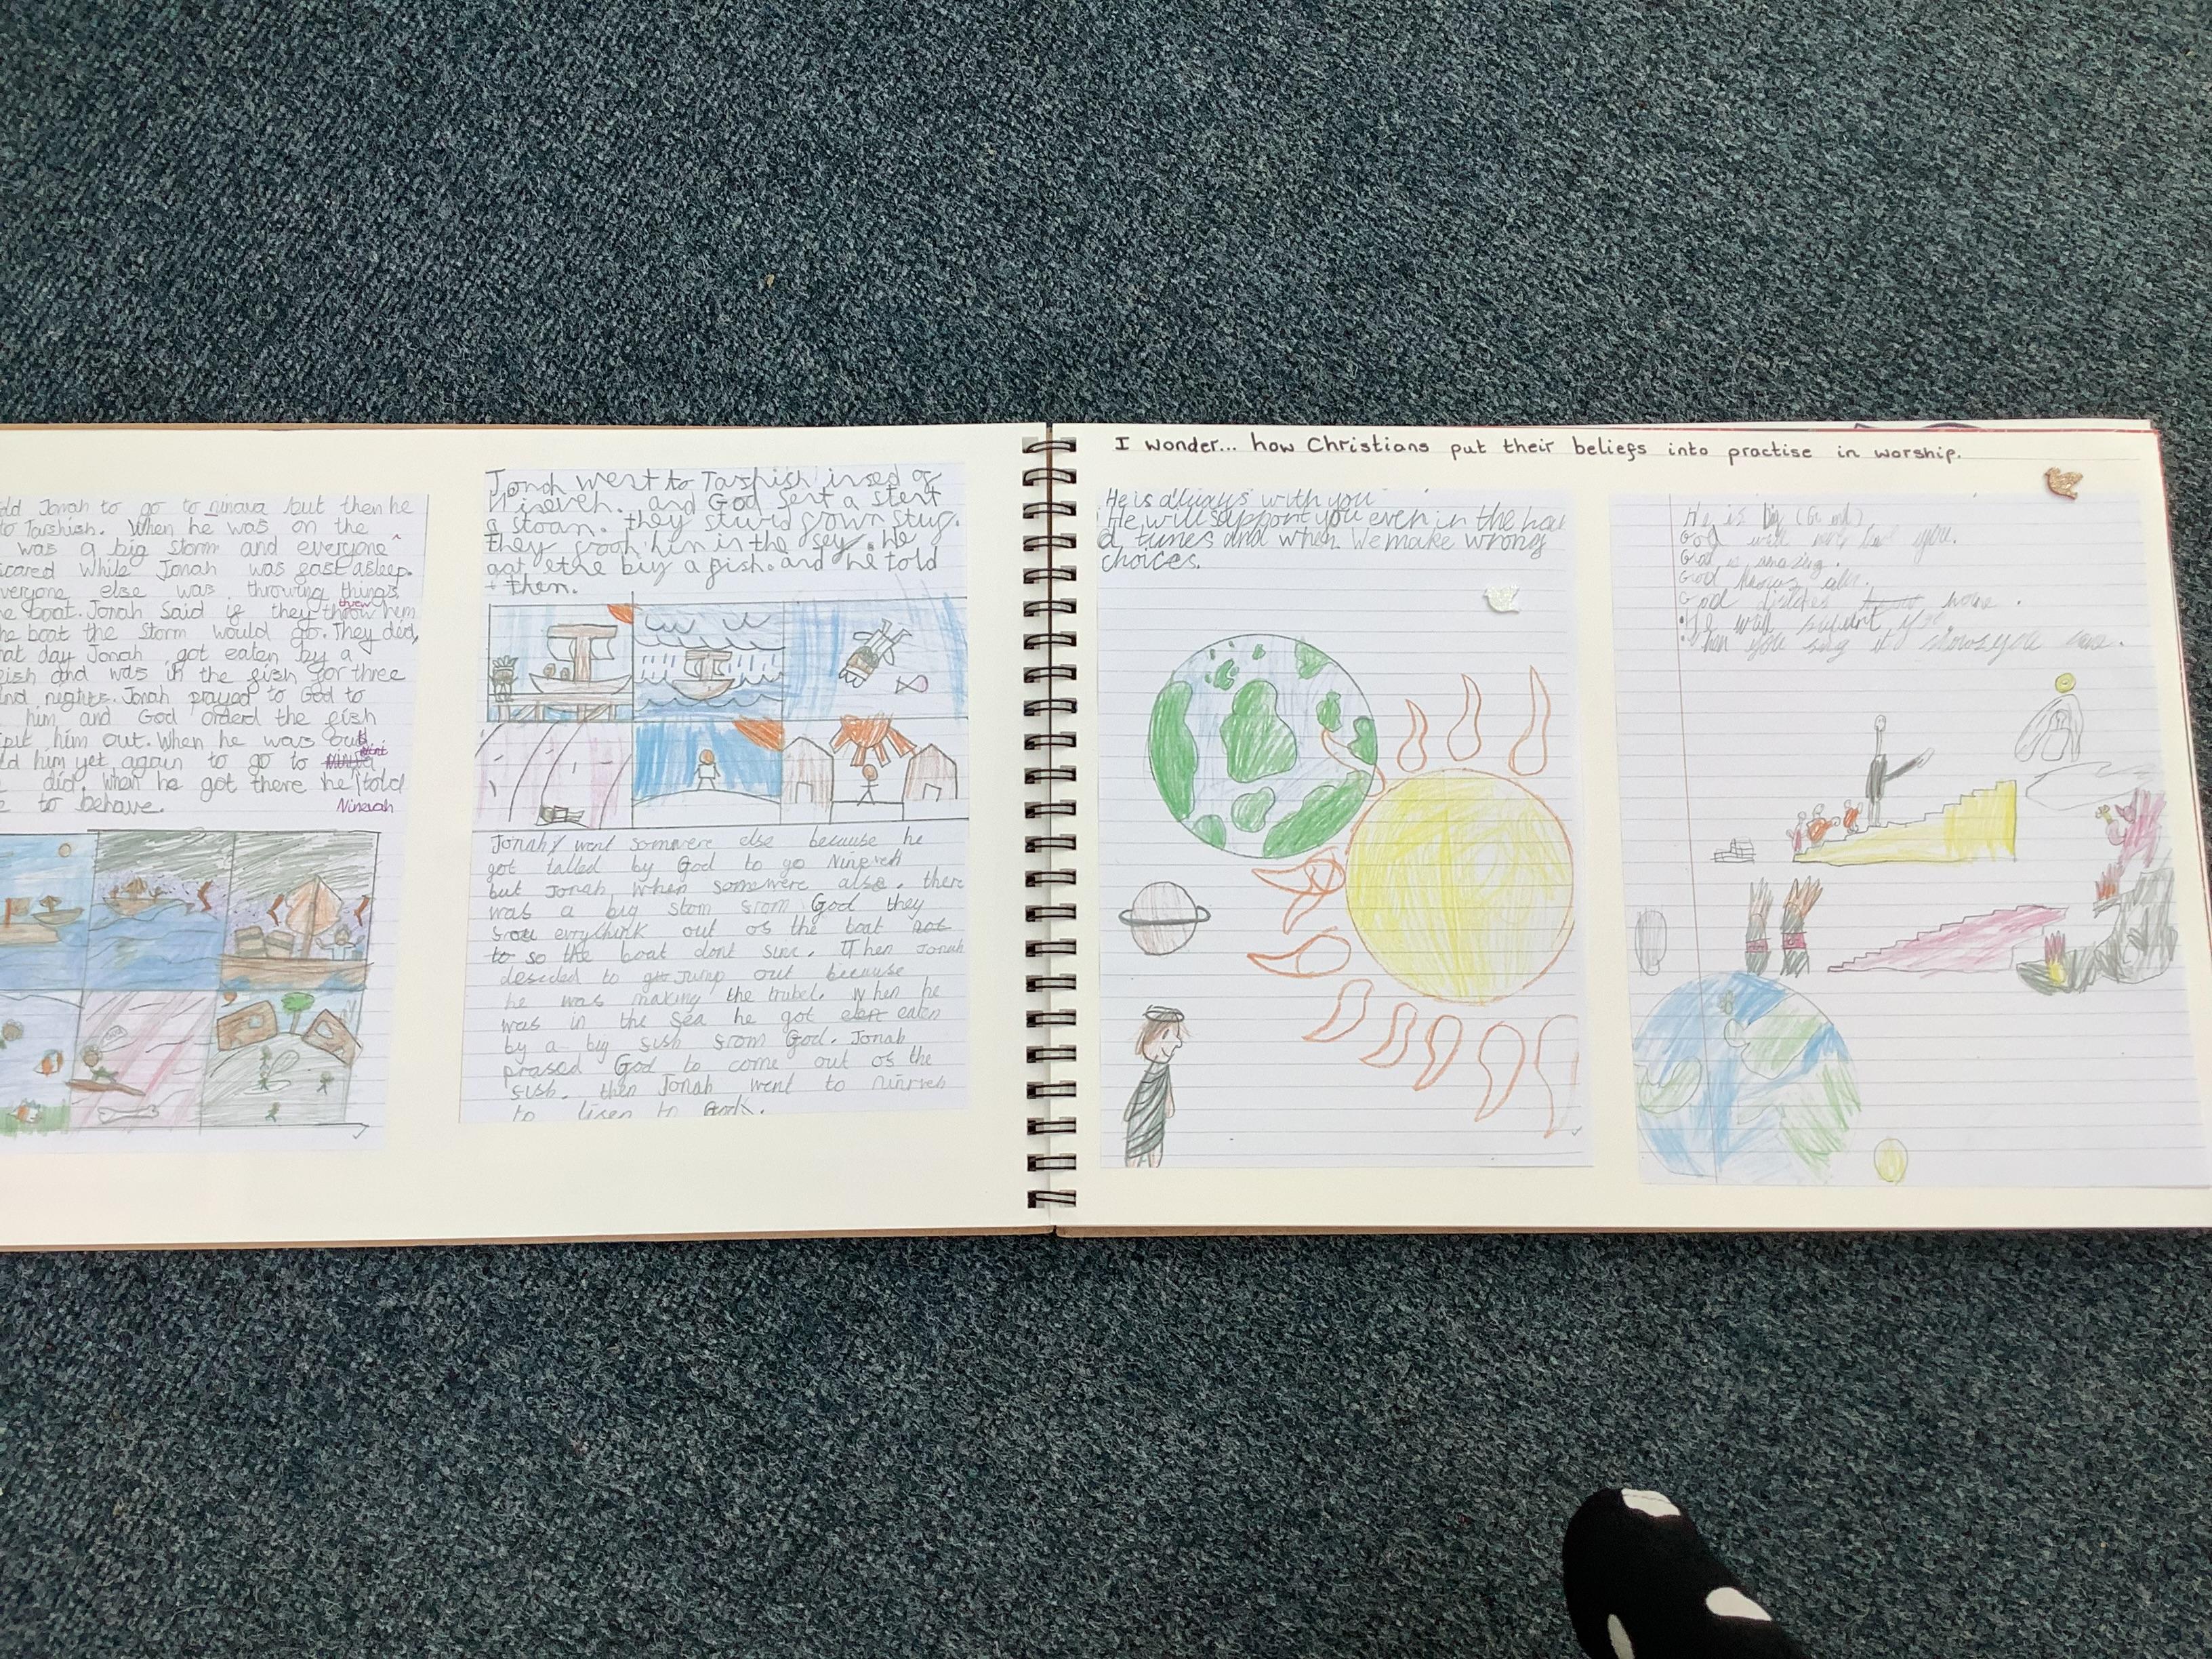 ld Jonah to go to ninava but then he
to Tarshish. When he was on the
was a big storm and everyone
scared while Jonah was fast asleep.
veryone else was throwing things
he boat. Jonah said if they threw him
he boat the storm would go. They did,
hat day Jonah got eaten by a
fish and was in the fish for three
and nights. Jonah prayed to God to
him and God orderd the fish
spit him out. When he was out
ld him yet again to go to
did. When he got there he told
e to behave.
Ninevah
Jonah went to Tarshish insed of
Nineveh. and God sent a
a stoam. they
they him in the sey. he
got big a fish. and he told
them.
Jonah went somwere else because he
got talled by God to go Nineveh
but Jonah when somewere alse. there
was a big stom from God they
out of the boat
to so the boat dont sinc. Then Jonah
desided to jump out because
he was making the trubel. When he
was in the sea he got eaten
by a big fish from God. Jonah
prased God to come out of the
fish. then Jonah went to nineveh
to lisen to
I wonder... how Christians put their beliefs into practise in worship.
He is always with you
He will support you even in the
d times and when We make wrong
choices.
He is big
God will you.
God is amazing.
God knows
God
He will
When you sing it shows you